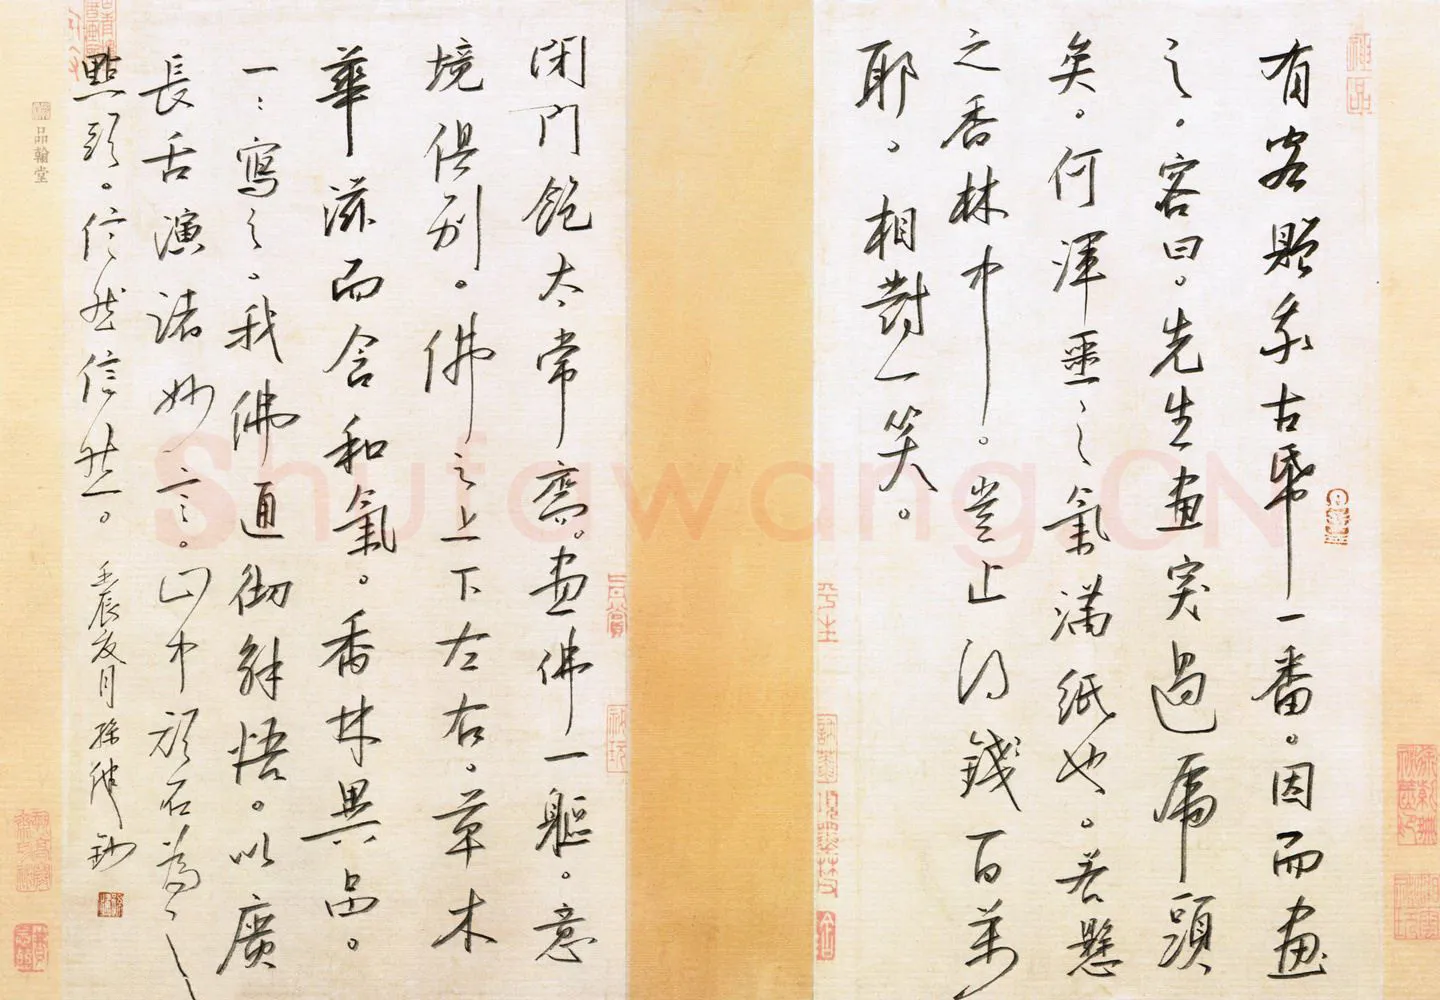 有客贈余古紙一番。因而畫
之。客曰。先生畫突過虎頭
矣。何渾噩之氣滿紙也。若懸
之香林中。豈止得錢百萬
耶。相對一笑。
閉門飽太常齋。畫佛一軀。意
境俱別。佛之上下左右。草木
華滋而含和氣。香林異品。
一一寫之。我佛通徹解悟。以廣
長舌演諸妙言。山中頑石為之
點頭。信然信然。壬辰
品翰堂
Shufawang.CN